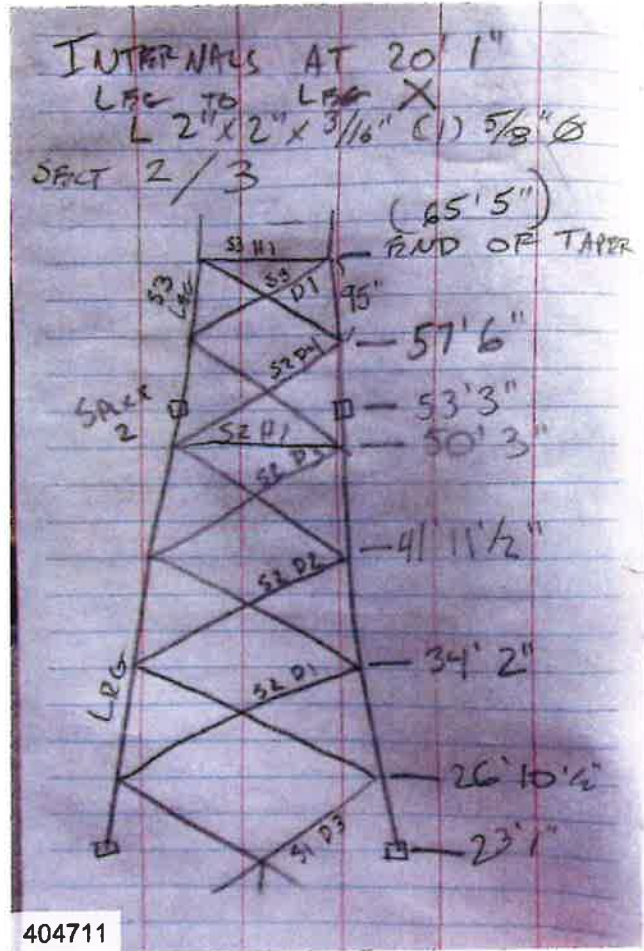 INTERNALS AT 20' 1"
LEG TO LEG X
L 2" x 2" x 3/16" (1) 5/8" Ø
SECT 2/3
(65'5")
END OF TAPER
S3 H1
S3 D1
S3 LEG
95"
57'6"
S2 D4
SPLICE 2
53'3"
S2 H1
50'3"
S2 D3
41'11 1/2"
S2 D2
34'2"
LEG
S2 D1
26'10 1/2"
23'1"
S1 D3
404711